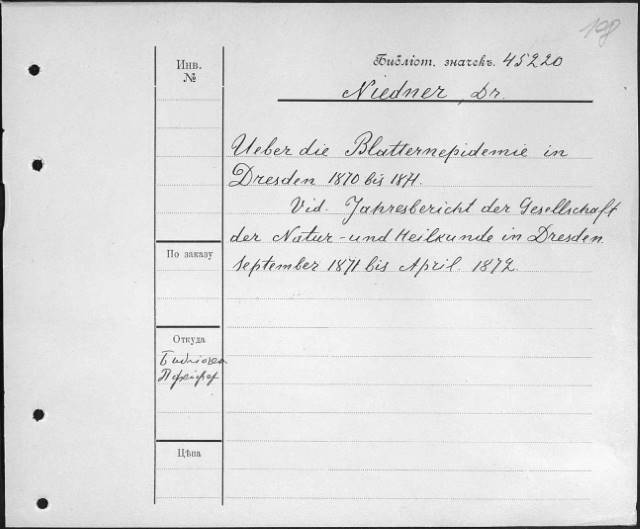 198
Инв.
№
Библіот. значекъ. 45220
Niedner, Dr.
Ueber die Blatternepidemie in
Dresden 1870 bis 1871.
Vid. Jahresbericht der Gesellschaft
der Natur- und Heilkunde in Dresden
September 1871 bis April. 1872.
По заказу
Откуда
Цѣна